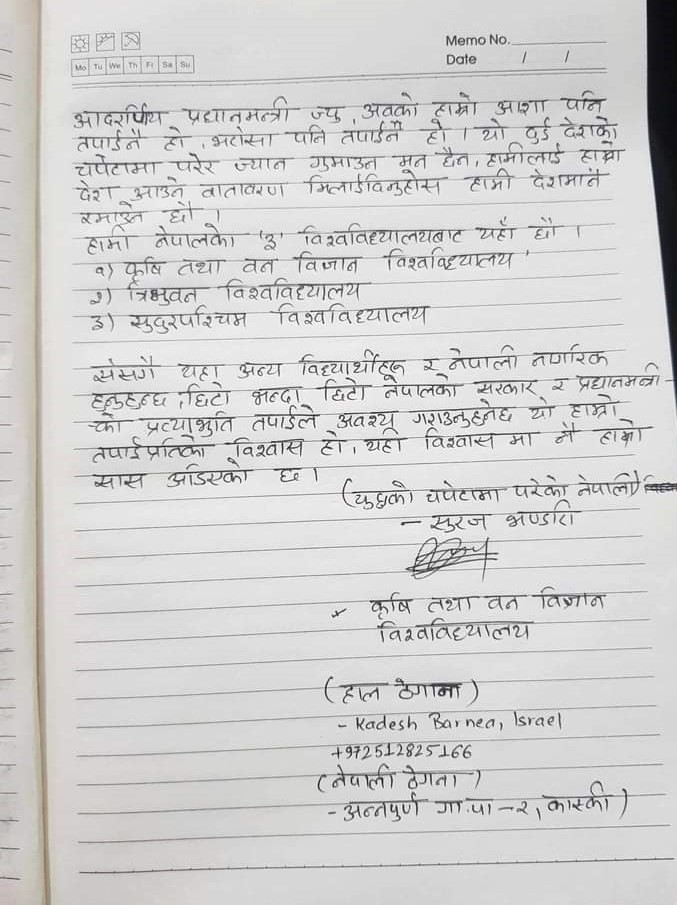 Memo No.
Mo Tu We Th Fr Sa Su
Date / /
आदरर्णिय प्रधानमन्त्री ज्यु, अबको हाम्रो आशा पनि
तपाईनै हो, भरोसा पनि तपाईनै हो । यो दुई देशको
चपेटामा परेर ज्यान गुमाउन मन छैन, हामीलाई हाम्रो
देश आउने वातावरण मिलाईदिनुहोस हामी देशमानै
रमाउने छौ ।
हामी नेपालका '३' विश्वविद्यालयबाट यहाँ छौ ।
१) कृषि तथा वन विज्ञान विश्वविद्यालय
२) त्रिभुवन विश्वविद्यालय
३) सुदुरपश्चिम विश्वविद्यालय
सँसगै यहा अन्य विद्यार्थीहरू र नेपाली नागरिक
हुनुहुन्छ, छिटो भन्दा छिटो नेपालको सरकार र प्रधानमन्त्री-
को प्रत्याभुति तपाईले अवश्य गराउनुहुनेछ यो हाम्रो
तपाईप्रतिको विश्वास हो, यही विश्वास मा नै हाम्रो
सास अडिएको छ ।
(युद्धको चपेटामा परेको नेपाली)
- सुरज भण्डारी
कृषि तथा वन विज्ञान
विश्वविद्यालय
(हाल ठेगाना)
- Kadesh Barnea, Israel
+972512825166
(नेपाली ठेगना)
- अन्नपुर्ण गा.पा - २, कास्की)